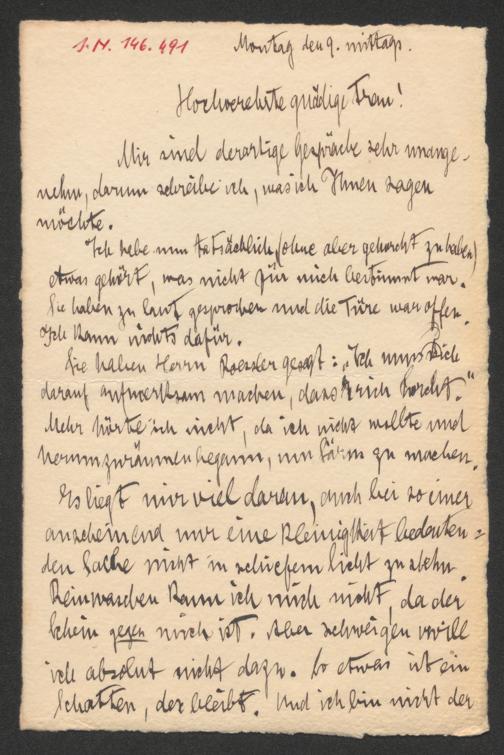 J.N. 146.491
Montag den 9. mittags.
Hochverehrte gnädige Frau!
Mir sind derartige Gespräche sehr unange-
nehm, darum schreibe ich, was ich Ihnen sagen
möchte.
Ich habe nun tatsächlich (ohne aber gehorcht zu haben)
etwas gehört, was nicht für mich bestimmt war.
Sie haben zu laut gesprochen und die Türe war offen.
Ich kann nichts dafür.
Sie haben Herrn Roessler gesagt: „Ich muss Dich
darauf aufmerksam machen, dass Erich horcht."
Mehr hörte ich nicht, da ich nicht wollte und
herumzuräumen begann, um Lärm zu machen.
Es liegt mir viel daran, auch bei so einer
anscheinend nur eine Kleinigkeit bedeuten=
den Sache nicht in schiefem Licht zu stehn.
Reinwaschen kann ich mich nicht, da der
Schein gegen mich ist. Aber schweigen will
ich absolut nicht dazu. So etwas ist ein
Schatten, der bleibt. Und ich bin nicht der